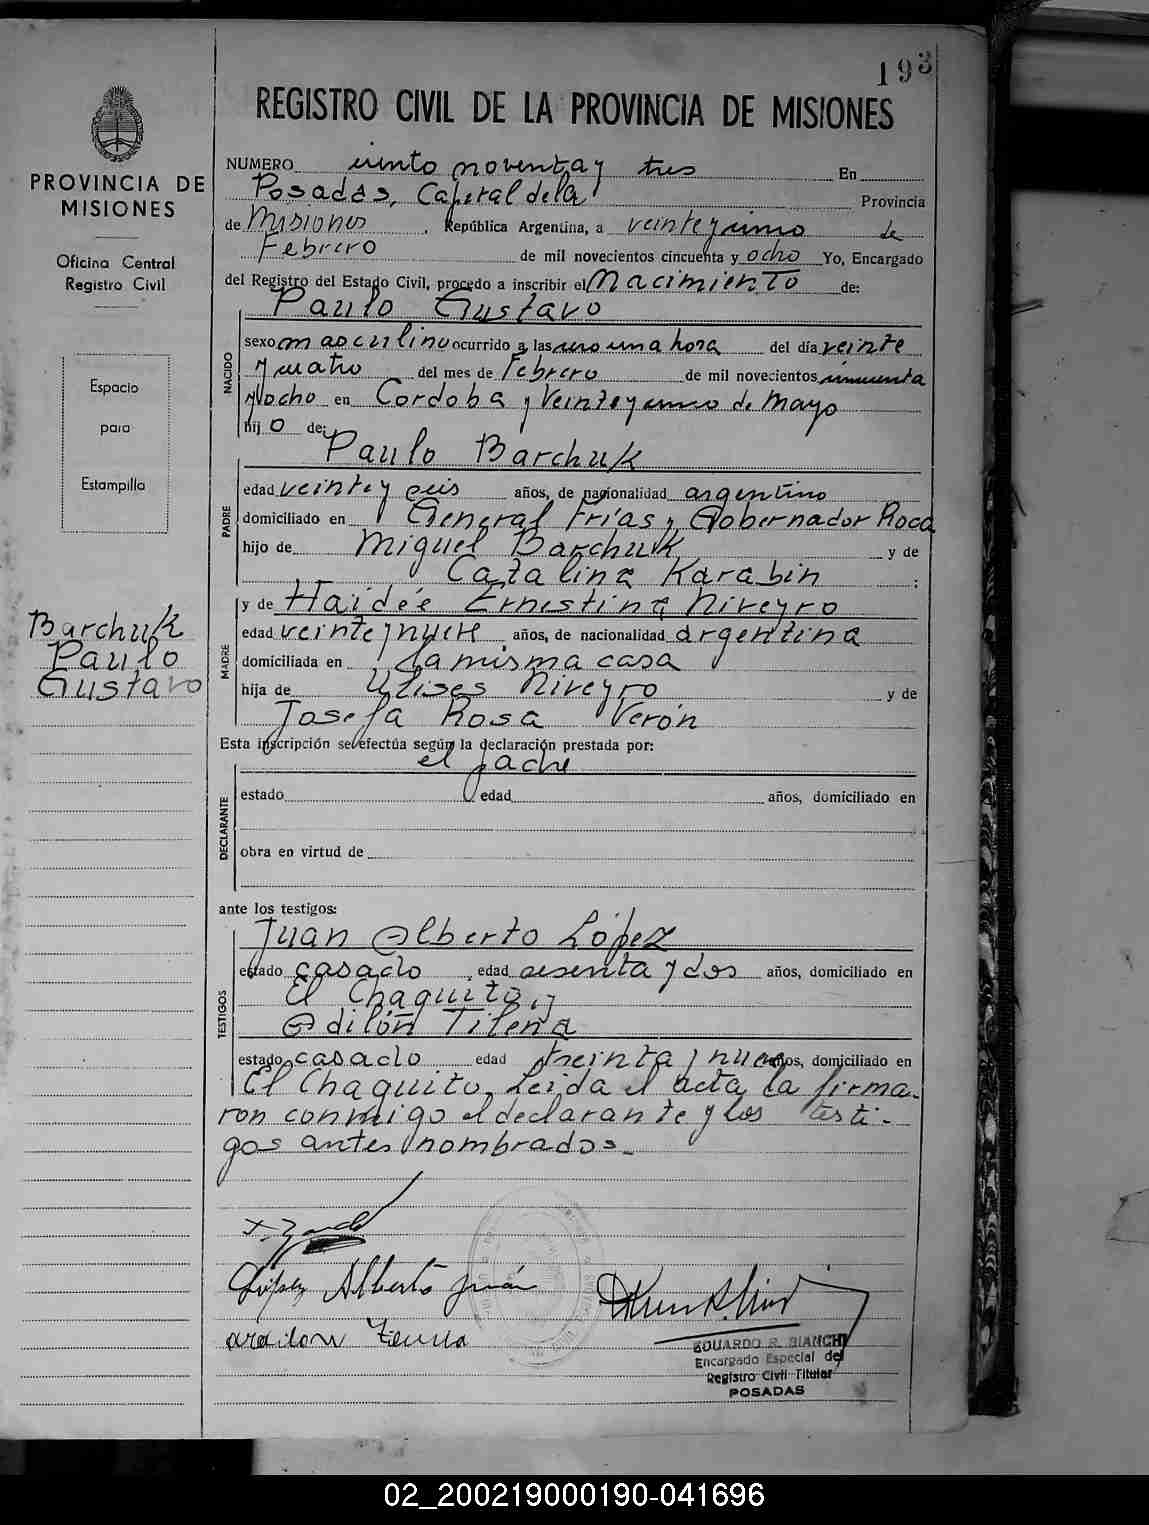 193
REGISTRO CIVIL DE LA PROVINCIA DE MISIONES
PROVINCIA DE
MISIONES
Oficina Central
Registro Civil
Espacio
para
Estampilla
Barchuk
Paulo
Gustavo
NUMERO ciento noventa y tres En
Posadas, Capital de la Provincia
de Misiones, República Argentina, a veinteycinco de
Febrero de mil novecientos cincuenta y ocho Yo, Encargado
del Registro del Estado Civil, procedo a inscribir el Nacimiento de:
Paulo Gustavo
NACIDO
sexo masculino ocurrido a las una hora del día veinte
y cuatro del mes de Febrero de mil novecientos cincuenta
y ocho en Cordoba y Veinteycinco de Mayo
hijo de:
Paulo Barchuk
PADRE
edad veintey seis años, de nacionalidad argentino
domiciliado en General Frías y Gobernador Roca
hijo de Miguel Barchuk y de
Catalina Karabin ;
y de Haidée Ernestina Niveyro
MADRE
edad veinteynueve años, de nacionalidad argentina
domiciliada en la misma casa
hija de Ulises Niveyro y de
Josefa Rosa Verón
Esta inscripción se efectúa según la declaración prestada por:
el padre
DECLARANTE
estado edad años, domiciliado en
obra en virtud de
ante los testigos:
Juan Alberto López
TESTIGOS
estado casado edad sesenta y dos años, domiciliado en
El Chaquito, y
Odilón Tilena
estado casado edad treinta y nueve años, domiciliado en
El Chaquito, Leida el acta la firma-
ron conmigo el declarante y los testi-
gos antes nombrados.
López Alberto Juan
EDUARDO R. BIANCHI
Encargado Especial del
Registro Civil Titular
POSADAS
02_200219000190-041696